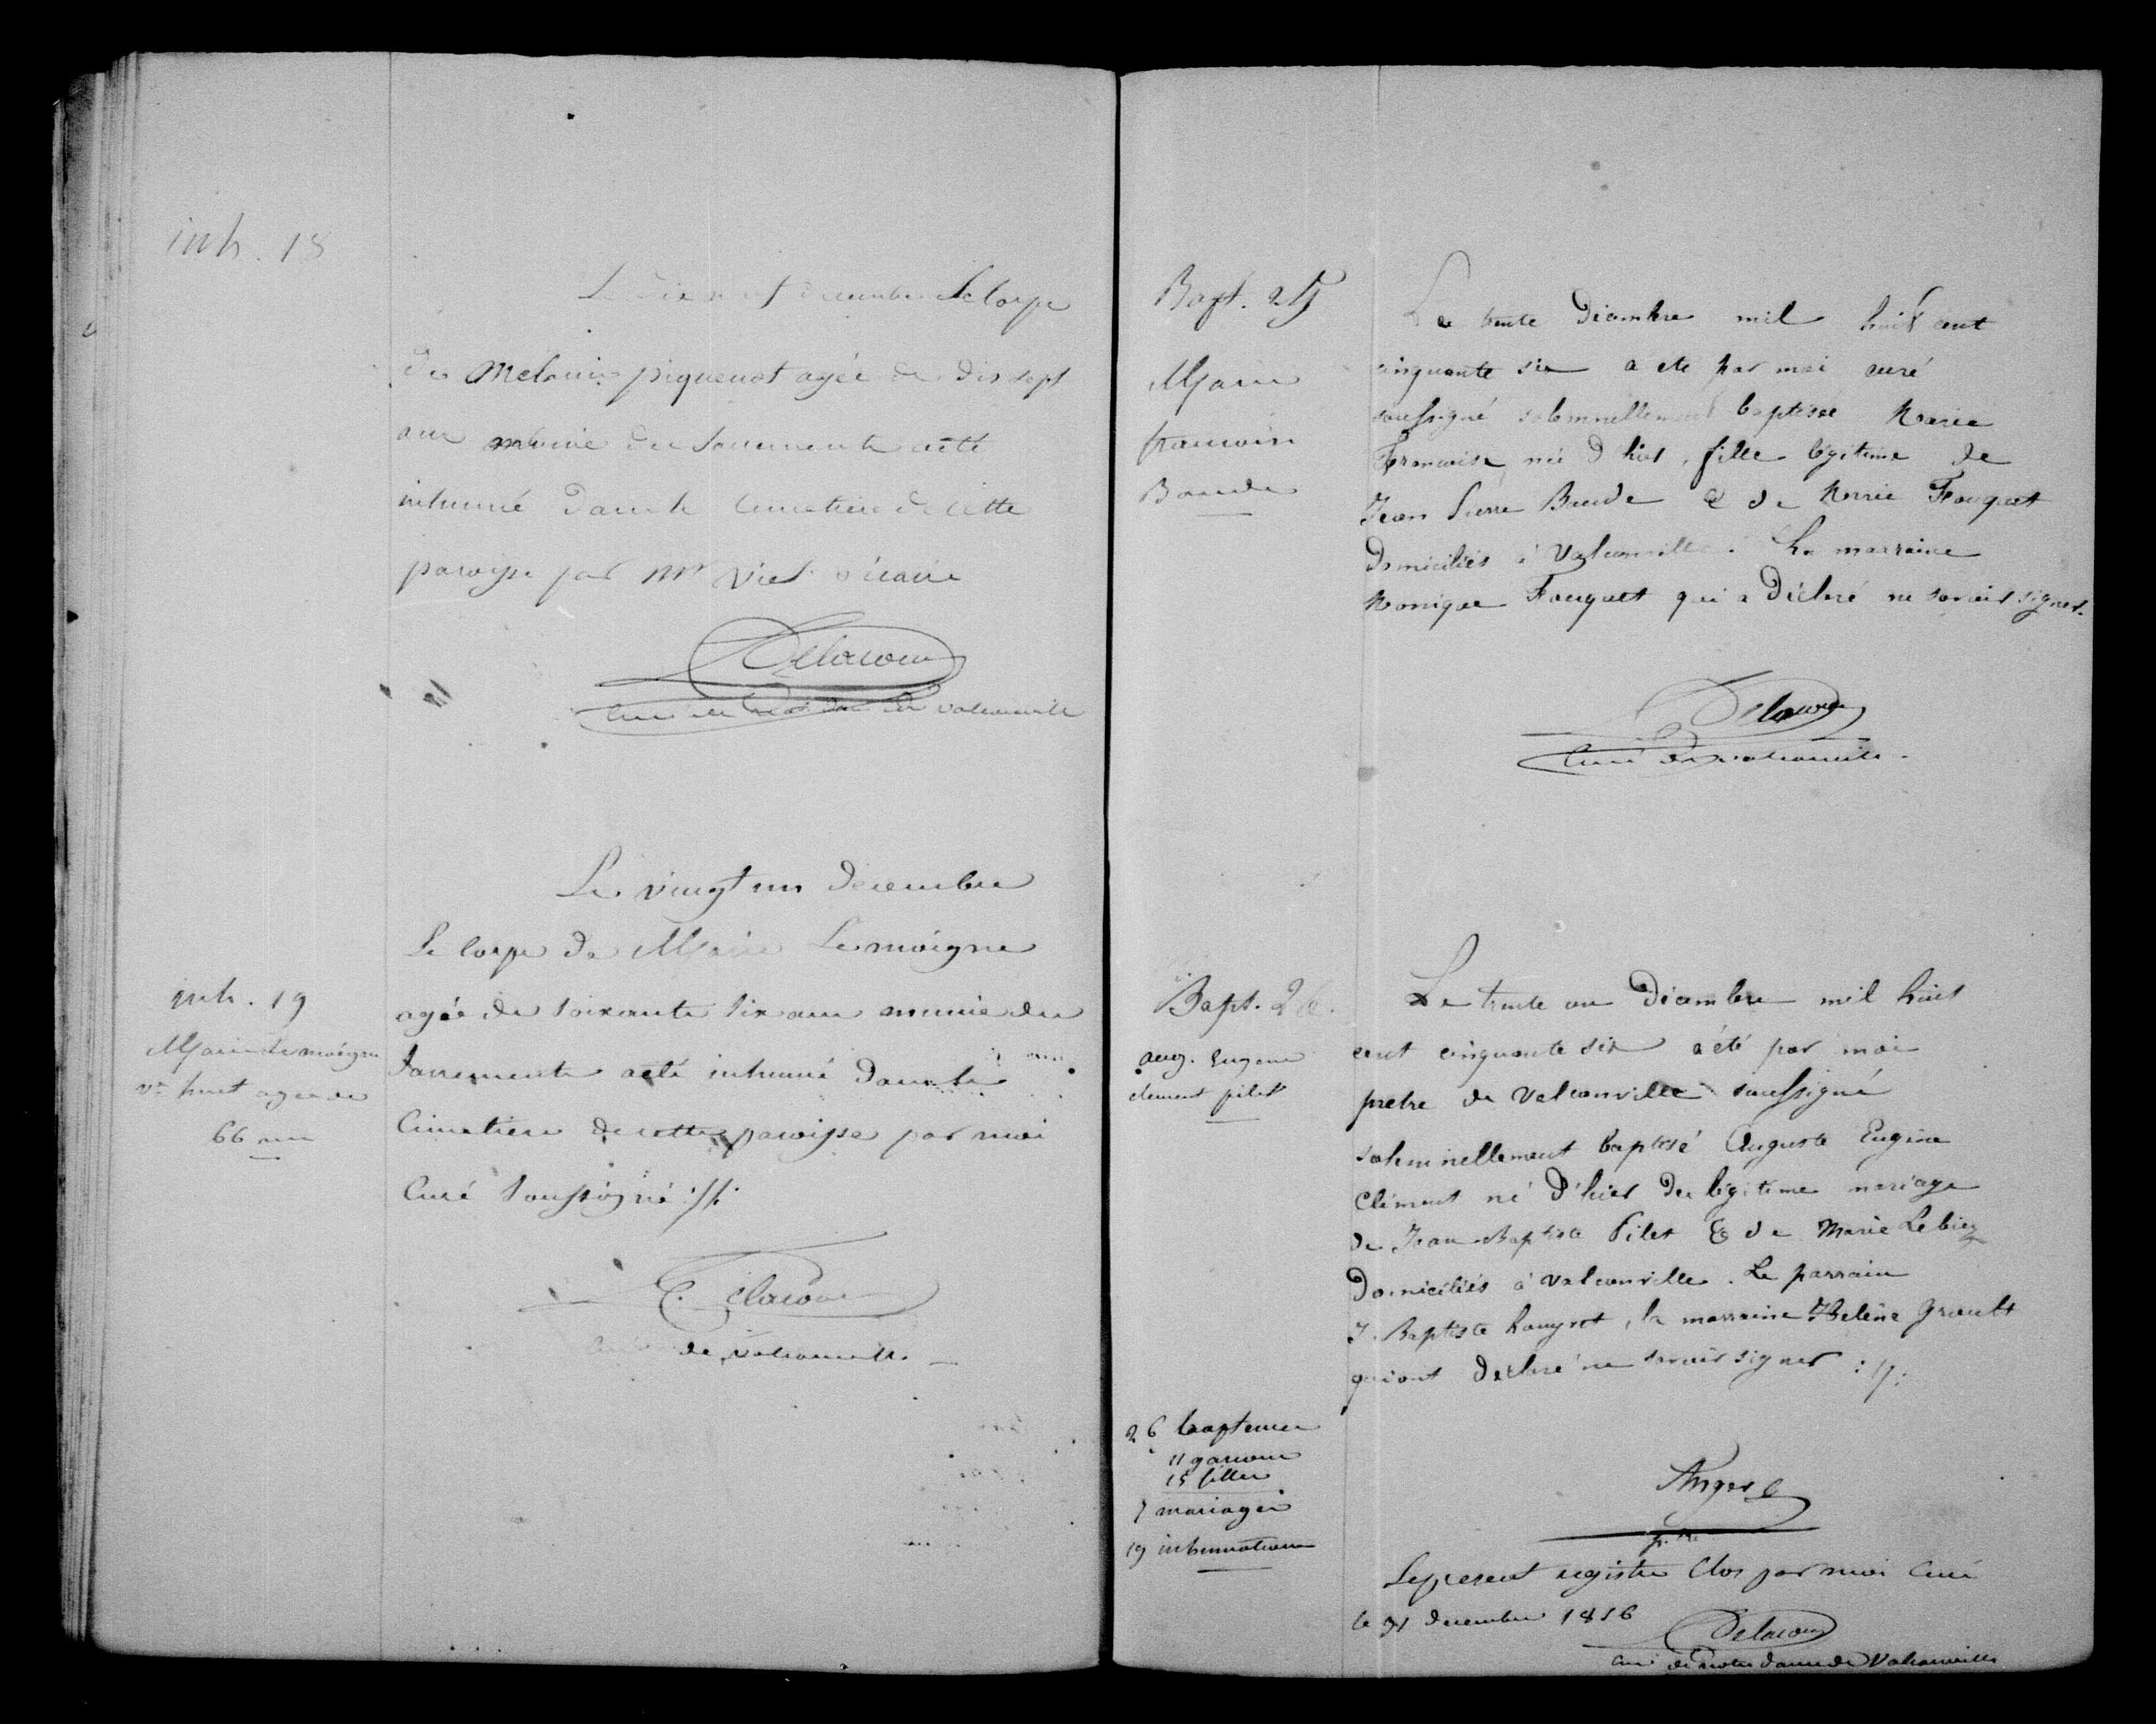 inh. 18
Le dix neuf decembre le corps
de Melanie piquenot agée de dix sept
ans munie des sacrements a été
inhumé dans le cimetiere de cette
paroisse par Mr Viel vicaire
Delacour
curé de notre dame de valcanville
inh. 19
Marie Lemoigne
ve huet agée de
66 ans
Le vingt un decembre
Le corps de Marie Lemoigne
agée de soixante six ans munie des
sacrements a été inhumé dans le
Cimetiere de cette paroisse par moi
Curé soussigné ://:
Delacour
Curé de valcanville
Bapt. 25
Marie
francoise
Baude
Le trente Décembre mil huit cent
cinquante six a ete par moi curé
soussigné solemnellement baptisée Marie
Francoise née d'hier, fille légitime de
Jean Pierre Baude & de Marie Fouquet
Domiciliés à Valcanville. La marraine
Monique Fouquet qui a Déclaré ne savoir signer.
Delacour
Curé de valcanville.
Bapt. 26.
aug. Eugene
clement pilet
Le trente un Décembre mil huit
cent cinquante six a été par moi
pretre de Valcanville soussigné
solemnellement baptisé Auguste Eugène
Clément né d'hier du légitime mariage
de Jean Baptiste Pilet & de Marie Lebiez
Domiciliés à Valcanville. Le parrain
J. Baptiste , la marraine Helène Grault
qui ont déclaré ne savoir signer ://:
Anger
p.tre
26 baptemes
11 garcons
15 filles
7 mariages
19 inhumations
Le present registre Clos par moi Curé
le 31 decembre 1856
Delacour
curé de notre dame de Valcanville